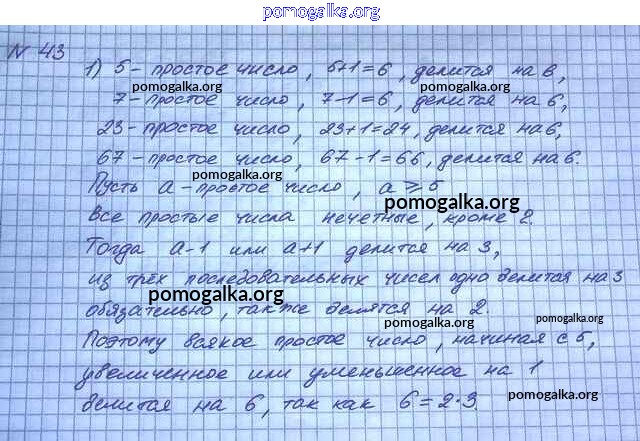 pomogalka.org
№ 43
1) 5 - простое число, 5+1=6, делится на 6,
pomogalka.org pomogalka.org
7 - простое число, 7-1=6, делится на 6,
23 - простое число, 23+1=24, делится на 6,
pomogalka.org pomogalka.org
67 - простое число, 67-1=66, делится на 6.
pomogalka.org
Пусть a - простое число, a ⩾ 5
pomogalka.org
Все простые числа нечетные, кроме 2.
Тогда a-1 или a+1 делится на 3,
из трёх последовательных чисел одно делится на 3
pomogalka.org
обязательно, также делятся на 2.
pomogalka.org pomogalka.org
Поэтому всякое простое число, начиная с 5,
увеличенное или уменьшенное на 1
pomogalka.org
делится на 6, так как 6=2·3.